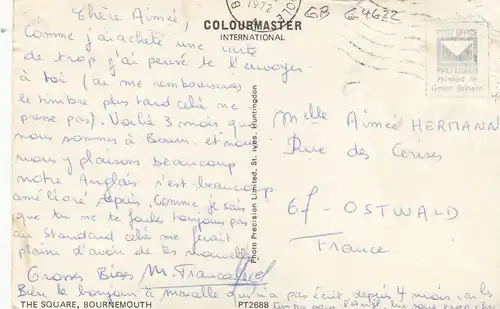 Chère Aimée,
Comme j'ai acheté une carte
de trop j'ai pensé te l'envoyer
à toi (tu me rembourseras
le timbre plus tard celà ne
presse pas). Voilà 3 mois que
nous sommes à Bourn. et nous
nous y plaisons beaucoup
notre Anglais s'est beaucoup
amélioré depuis. Comme je sais
que tu ne te foules toujours pas
au standard celà me ferait
plaisir d'avoir de tes nouvelles
Grosses Bises M. France
Bien le bonjour à Marcelle qui n'a pas écrit depuis 4 mois
THE SQUARE, BOURNEMOUTH PT2688
COLOURMASTER
INTERNATIONAL
Photo Precision Limited, St. Ives, Huntingdon
1972
GB G4622
POST OFFICE
Melle Aimée HERMANN
Rue des Cerises
67 - OSTWALD
France